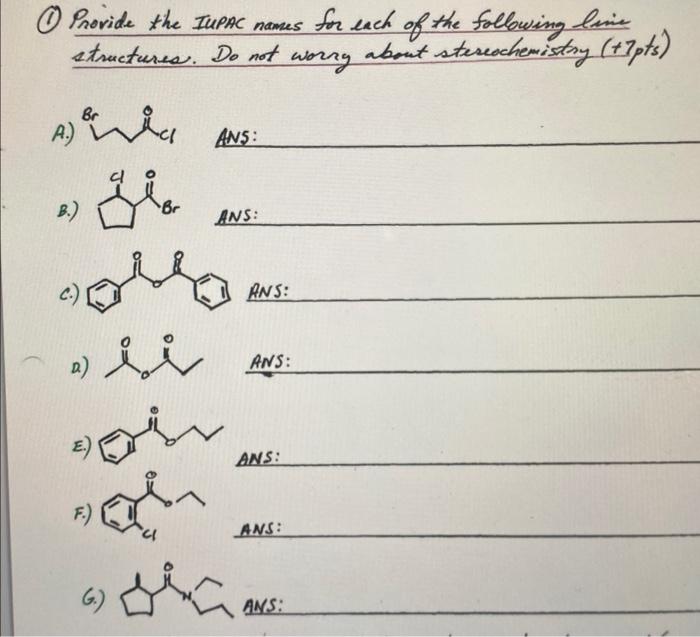 ① Provide the IUPAC names for each of the following line
structures. Do not worry about stereochemistry (+7pts)
A.) Br O Cl ANS:
B.) Cl O Br ANS:
C.) O O O ANS:
D.) O O O ANS:
E.) O O ANS:
F.) O O Cl ANS:
G.) O N ANS: